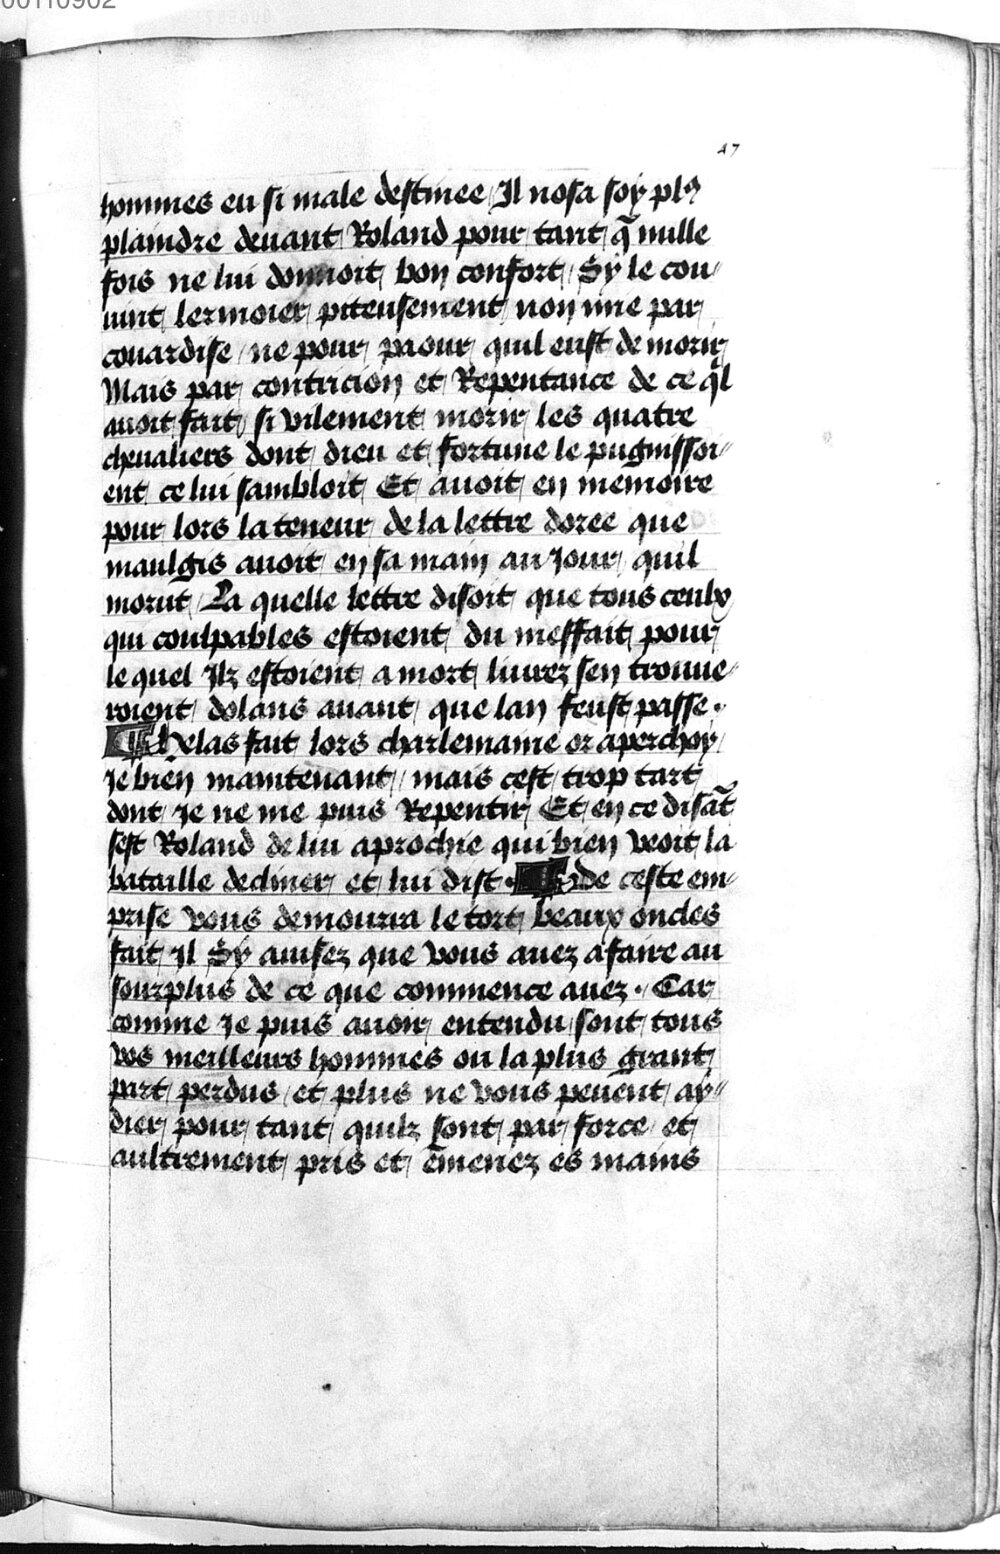 00110902
47
hommes en si male destinee / Il nosa soy plꝰ
plaindre deuant Roland pour tant q̃ nulle
fois ne lui donnoit bon confort / Sy le cou-
uint lermoier piteusement non mie par
couardise / ne pour paour quil eust de morir
Mais par contricion et Repentance de ce q̃l
auoit fait si vilement morir les quatre
cheualiers dont dieu et fortune le pugnissoi-
ent ce lui sambloit Et auoit en memoire
pour lors la teneur de la lettre doree que
maulgis auoit en sa main au Jour quil
morut / La quelle lettre disoit que tous ceulx
qui coulpables estoient du meffait pour
le quel Ilz estoient a mort liurez sen trouue-
roient dolans auant que lan feust passe .
¶ helas fait lors charlemaine or aperchoy
Je bien maintenant / mais cest trop tart
dont Je ne me puis Repentir Et en ce disãt
sest Roland de lui aprochie qui bien veoit la
bataille decliner et lui dist . ¶ De ceste em-
prise vous demoura le tort beaux oncles
fait Il Sy auisez que vous auez a faire au
sourplus de ce que commence auez . Car
comme Je puis auoir entendu sont tous
vos meilleurs hommes ou la plus grant
part perdus / et plus ne vous peuent ay-
dier pour tant quilz sont par force et
aultrement pris et ẽmenez es mains